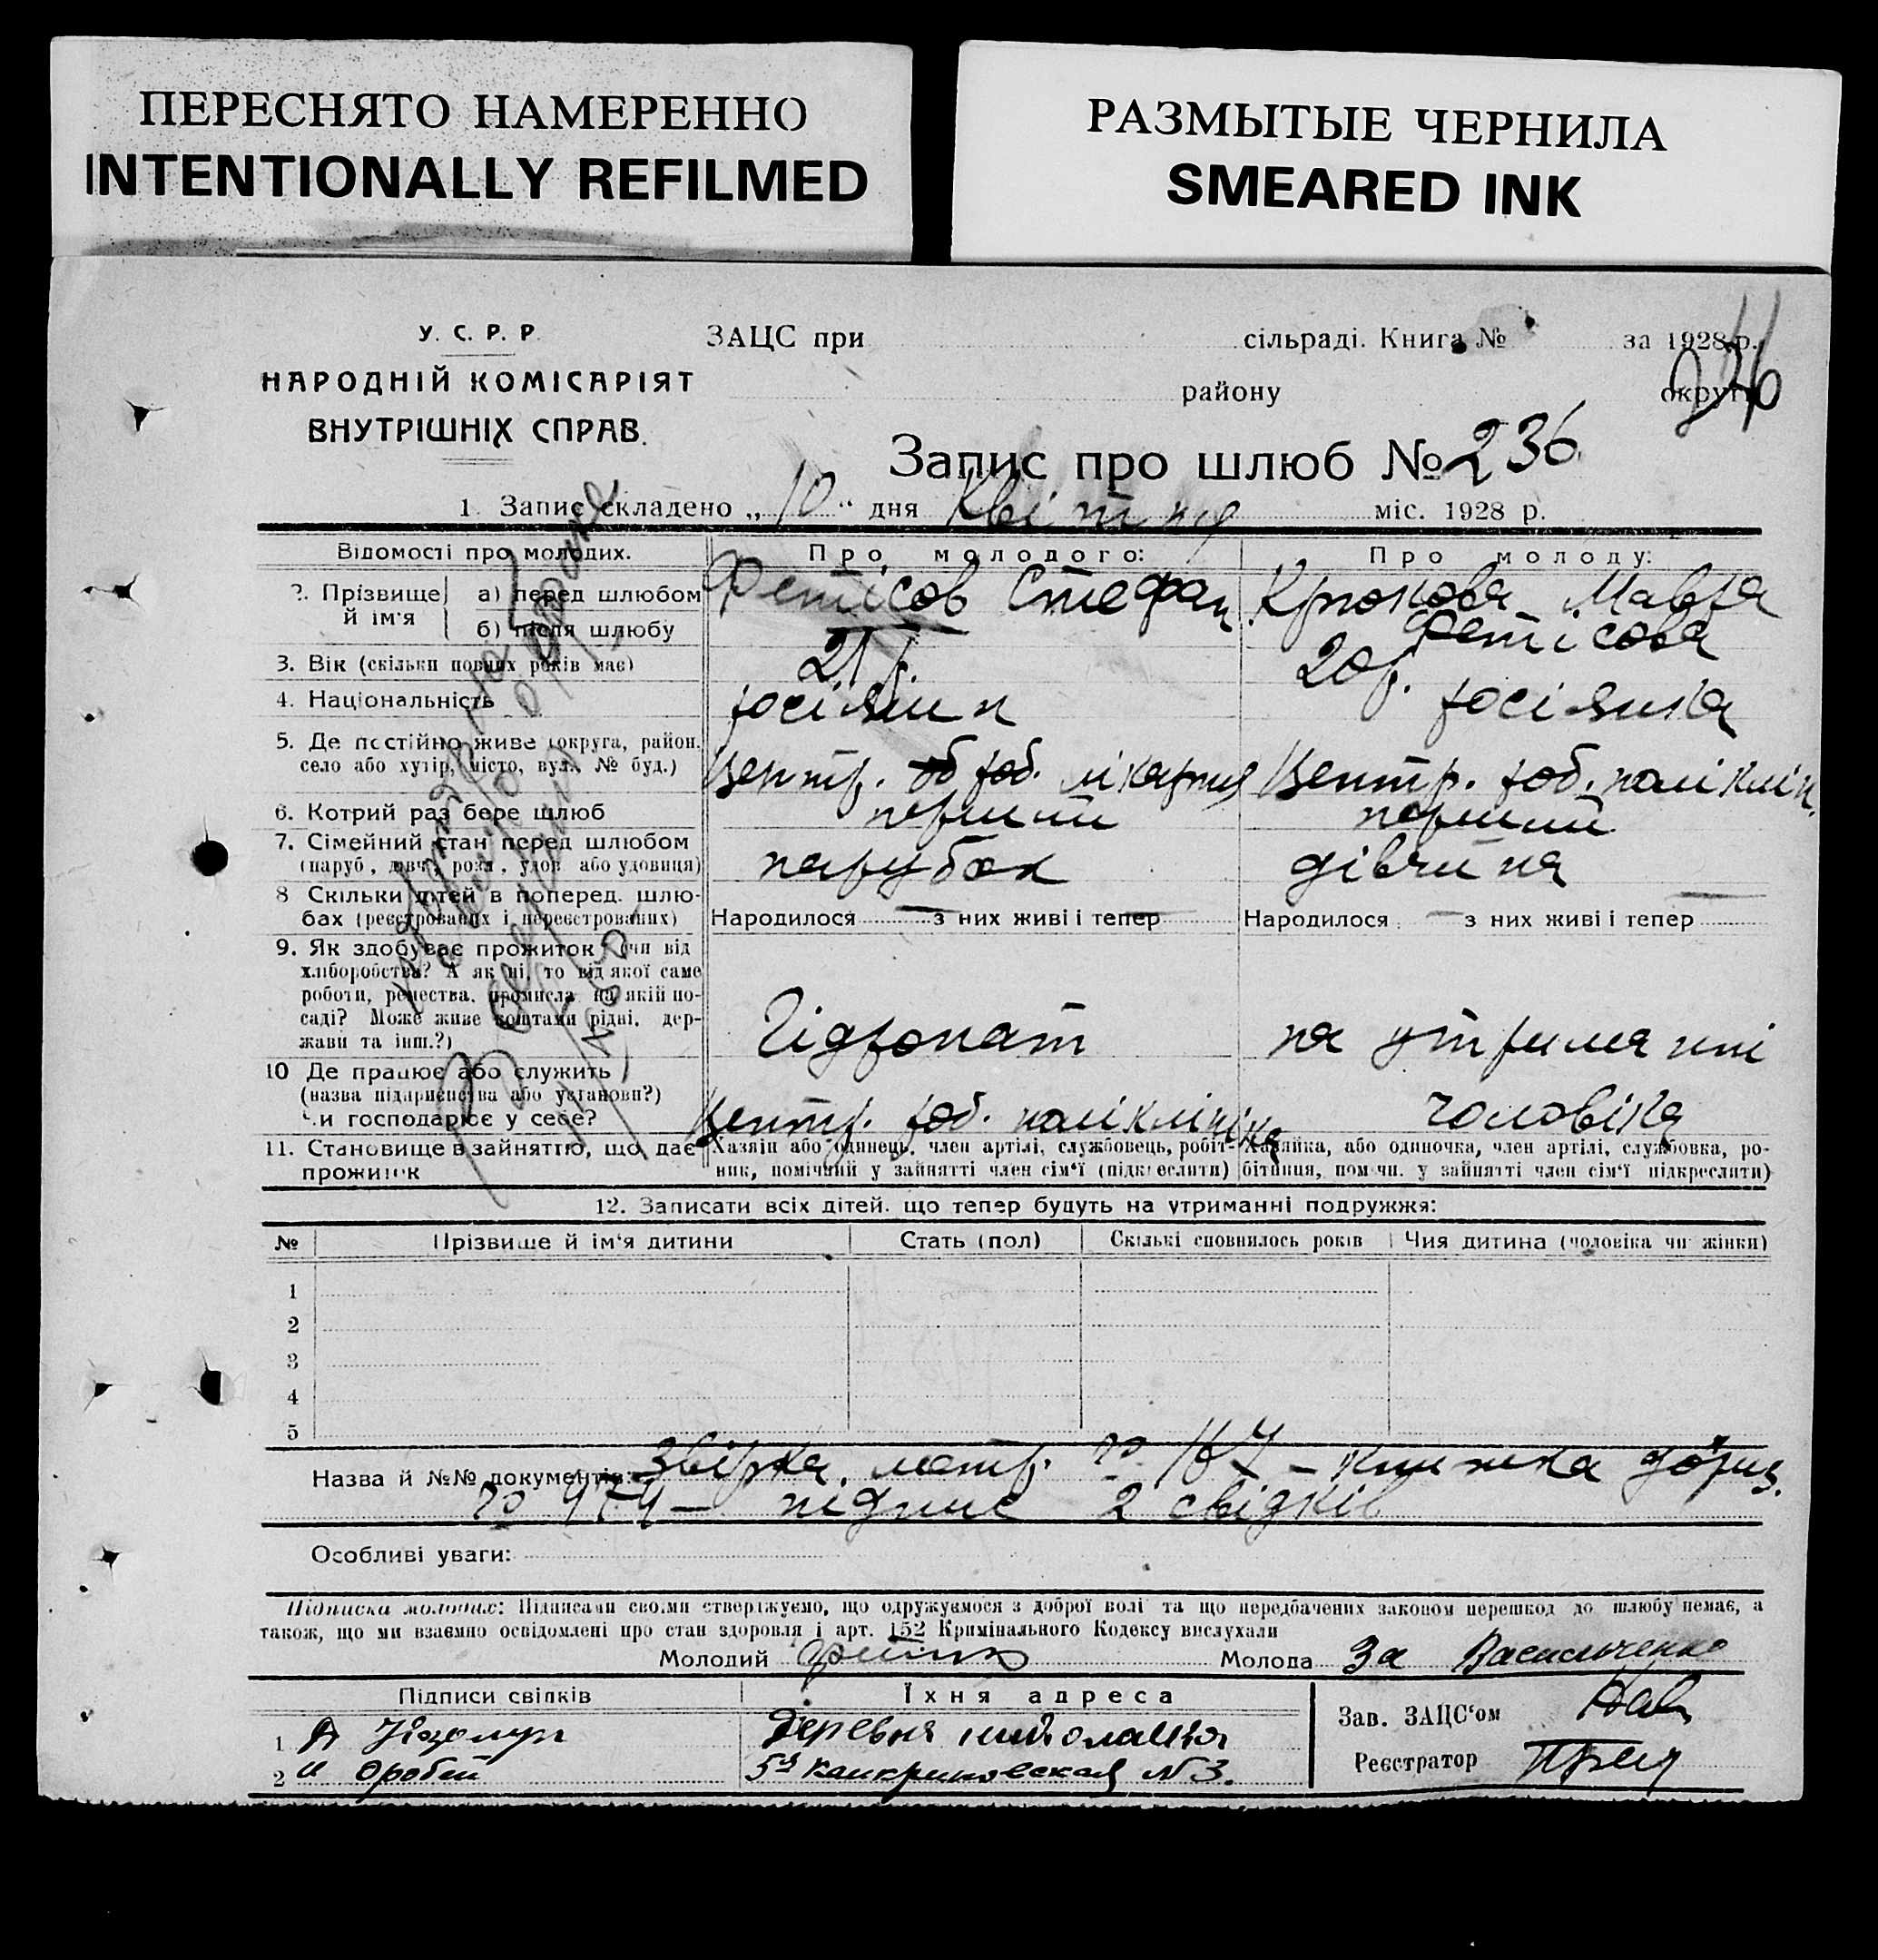 ПЕРЕСНЯТО НАМЕРЕННО
INTENTIONALLY REFILMED
РАЗМЫТЫЕ ЧЕРНИЛА
SMEARED INK
У. С. Р. Р.
НАРОДНІЙ КОМІСАРІЯТ
ВНУТРІШНІХ СПРАВ.
ЗАЦС при сільраді. Книга № за 1928 р.
району округи
236
Запис про шлюб № 236
1. Запис складено „ 10 “ дня Квітня міс. 1928 р.
Відомості про молодих. Про молодого: Про молоду:
2. Прізвище й ім'я а) перед шлюбом Фетісов Стефан Крюкова Мавра
б) після шлюбу Фетісова
3. Вік (скільки повних років має) 21 р. 20 р.
4. Національність росіянин росіянка
5. Де постійно живе (округа, район, село або хутір, місто, вул., № буд.) Центр. роб. лікарня Центр. роб. поліклін.
6. Котрий раз бере шлюб перший перший
7. Сімейний стан перед шлюбом (паруб., дівч., розл., удов. або удовиця) парубок дівчина
8 Скільки дітей в поперед. шлюбах (реєстрованих і нереєстрованих) Народилося — з них живі і тепер — Народилося — з них живі і тепер —
9. Як здобуває прожиток (чи від хліборобства? А як ні, то від якої саме роботи, ремества, промисла на якій посаді? Може живе коштами рідні, держави та інш.?) Гідропат на утриманні
10 Де працює або служить (назва підприємства або установи?) Чи господарює у себе? Центр. роб. поліклініка чоловіка
11. Становище в зайняттю, що дає прожиток Хазяїн або одинець, член артілі, службовець, робітник, помічний у зайнятті член сім'ї (підкреслити) Хазяйка, або одиночка, член артілі, службовка, робітниця, помічн. у зайнятті член сім'ї підкреслити)
12. Записати всіх дітей, що тепер будуть на утриманні подружжя:
№ Прізвище й ім'я дитини Стать (пол) Скількі сповнилось років Чия дитина (чоловіка чи жінки)
1
2
3
4
5
Назва й №№ документів: Звірка. метр. № 167 – книжка
№ – підпис 2 свідків
Особливі уваги:
Підписка молодих: Підписами своїми стверджуємо, що одружуємося з доброї волі та що передбачених законом перешкод до шлюбу немає, а
також, що ми взаємно освідомлені про стан здоровля і арт. 152 Кримінального Кодексу вислухали
Молодий Молода За Васильченко
Підписи свідків Їхня адреса
Зав. ЗАЦС'ом
1 Деревня
2 5я №3.
Реєстратор